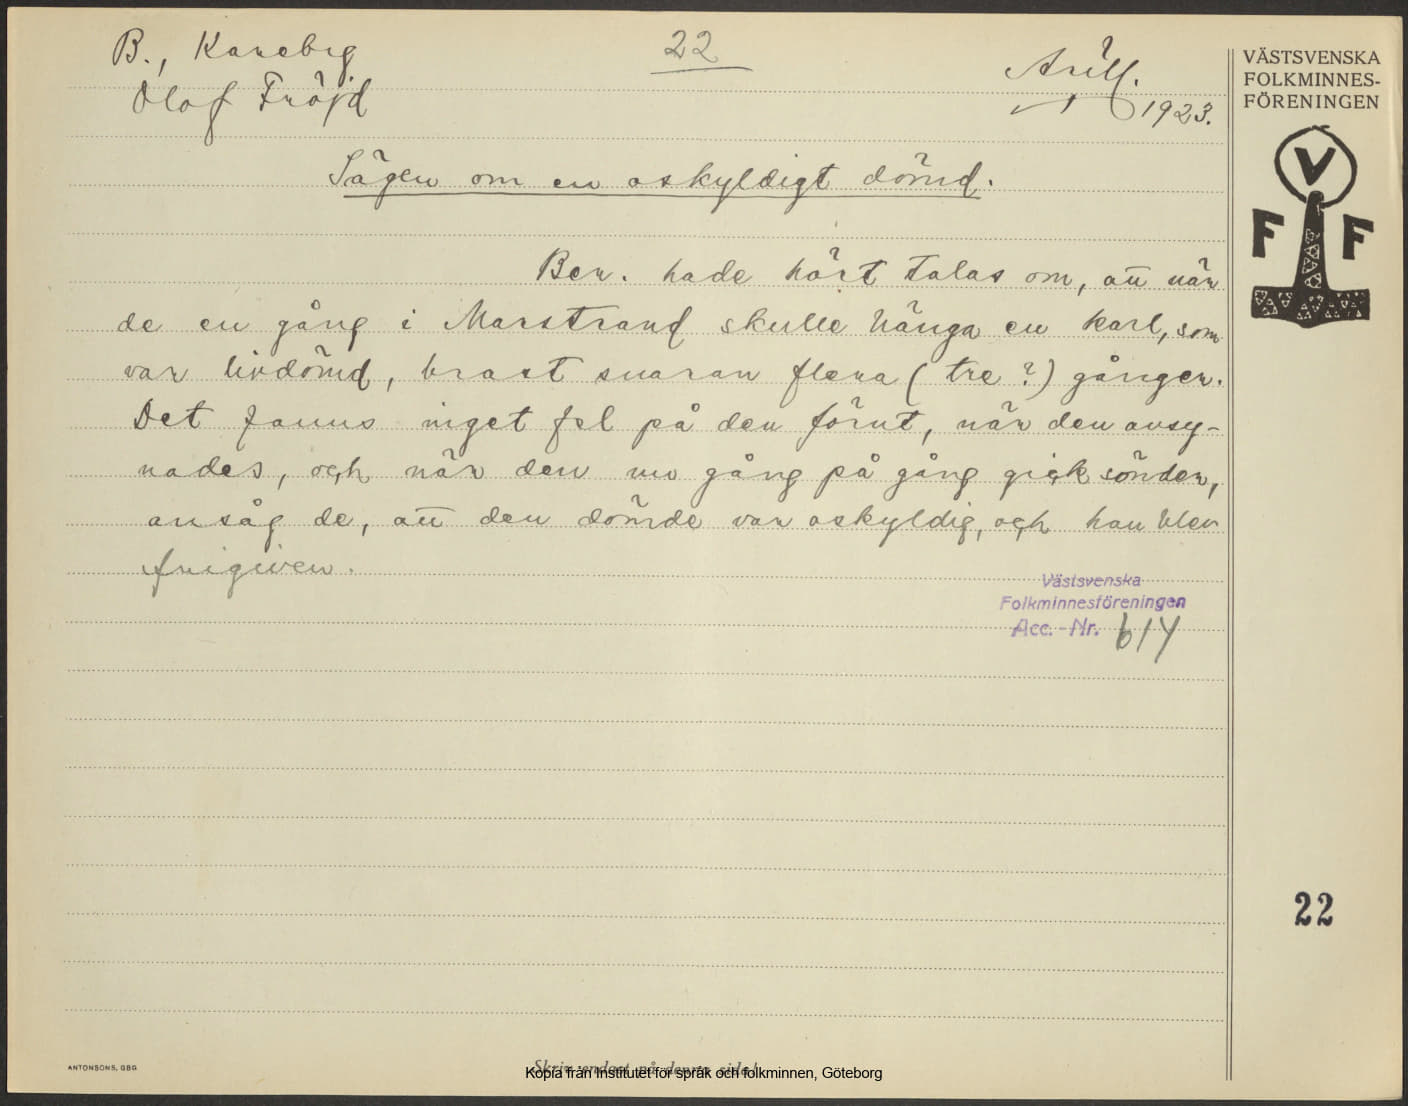 B., Kareby
22
Arill.
Olof Fröjd
1923.
VÄSTSVENSKA
FOLKMINNES-
FÖRENINGEN
V
F F
Sägen om en oskyldigt dömd.
Ber. hade hört talas om, att när
de en gång i Marstrand skulle hänga en karl, som
var livdömd, brast snaran flera (tre?) gånger.
Det fanns inget fel på den förut, när den avsy-
nades, och när den nu gång på gång gick sönder,
ansåg de, att den dömde var oskyldig, och han blev
frigiven.
Västsvenska
Folkminnesföreningen
Acc. - Nr. 614
22
ANTONSONS, GBG
Skriv endast på denna sida!
Kopia från Institutet för språk och folkminnen, Göteborg